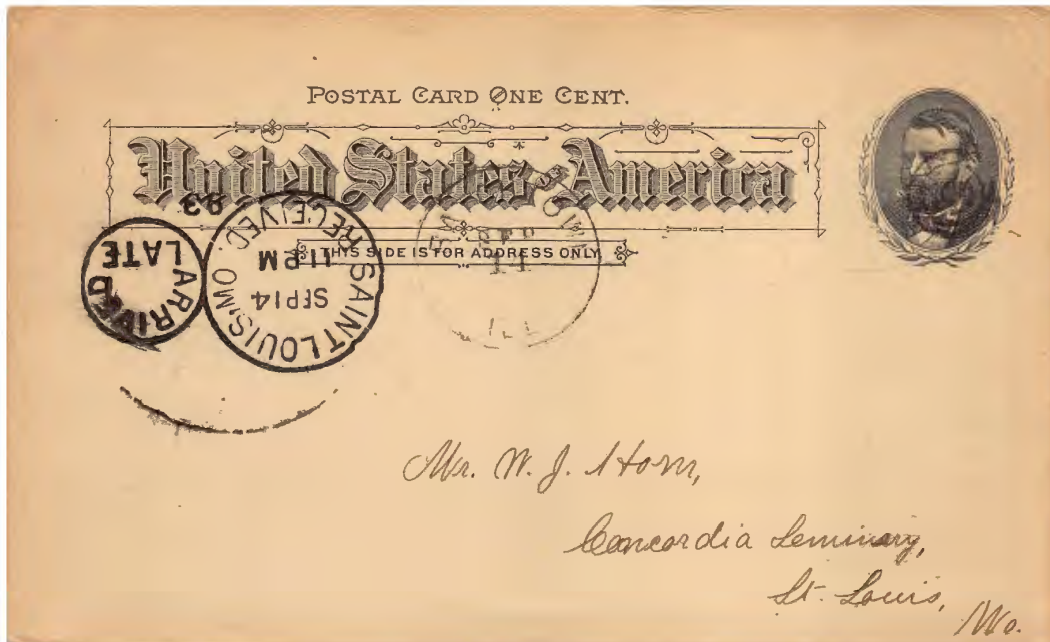 POSTAL CARD ONE CENT.
United States of America
THIS SIDE IS FOR ADDRESS ONLY.
SAINT LOUIS, MO
RECEIVED
SEP 14
11 PM
93
ARRIVED
LATE
SEP
14
Mr. W. J. Horn,
Concordia Seminary,
St. Louis,
Mo.